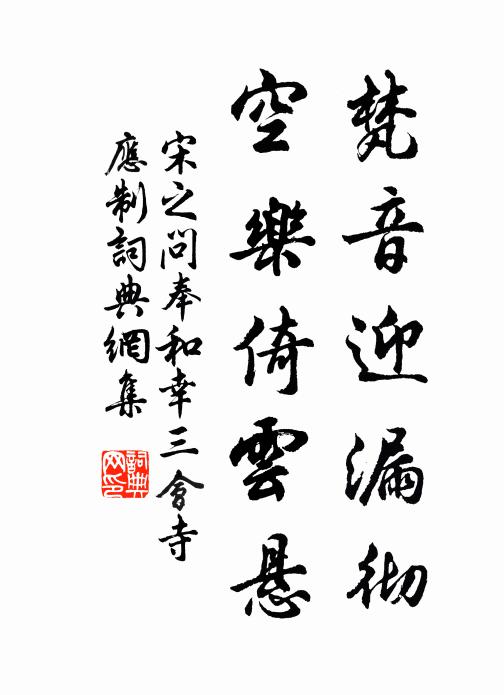 梵音迎漏彻
空樂倚雲悬
宋之问奉和幸三會寺
應制詞典網集
詞典网印